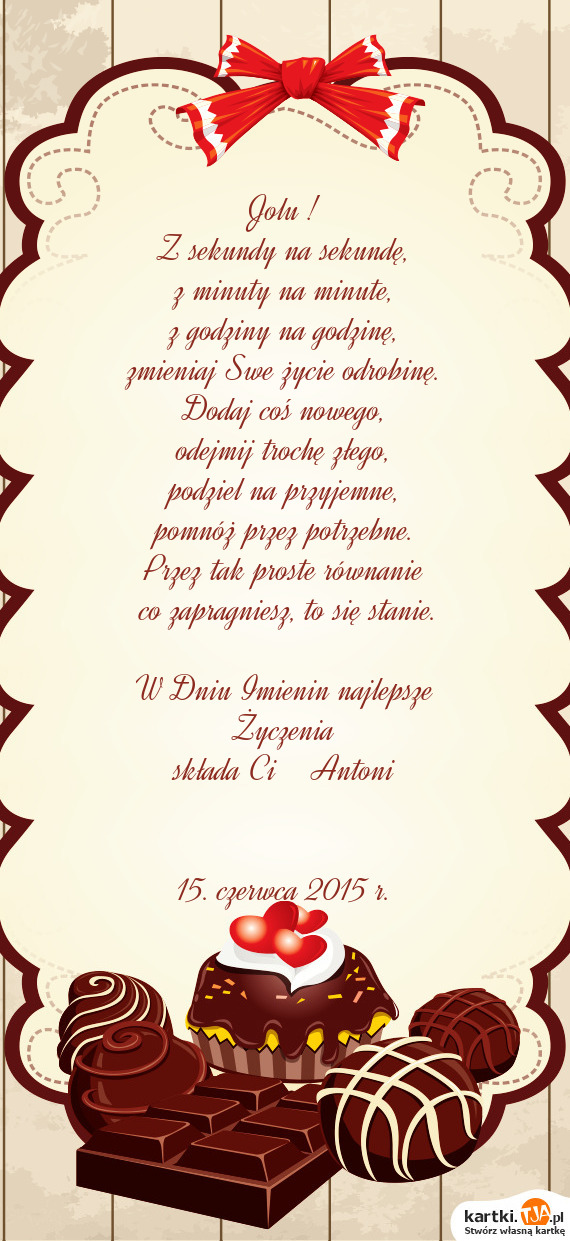 Jolu !
Z sekundy na sekundę,
z minuty na minute,
z godziny na godzinę,
zmieniaj Swe życie odrobinę.
Dodaj coś nowego,
odejmij trochę złego,
podziel na przyjemne,
pomnóż przez potrzebne.
Przez tak proste równanie
co zapragniesz, to się stanie.
W Dniu Imienin najlepsze
Życzenia
składa Ci Antoni
15. czerwca 2015 r.
kartki.TJA.pl
Stwórz własną kartkę